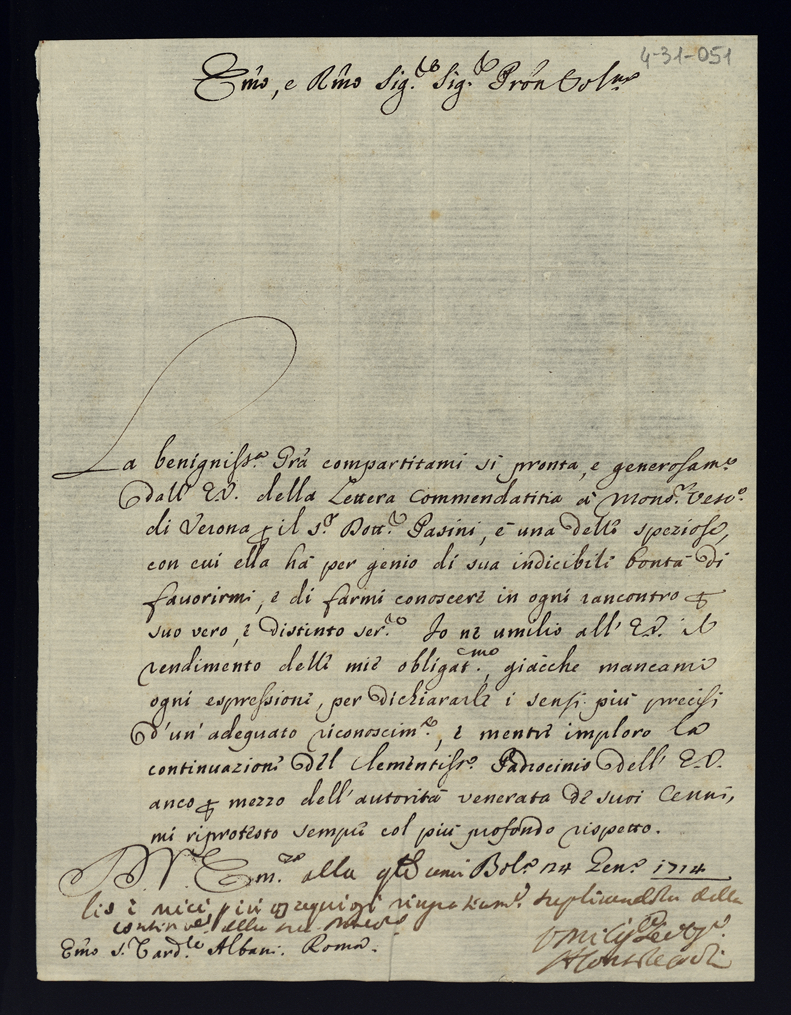 4-31-051
Emo, e Rmo Sig.re Sig.r Prōn Col.mo
La benigniss.a Grã compartitami si pronta, e generosam.te
dall' E.V. della Lettera Commendatitia à Mons.r Vesc.o
di Verona p il S.r Dott.r Pasini, è una delle speziose,
con cui ella hà per genio di sua indicibile bontà di
favorirmi, e di farmi conoscere in ogni rancontro p
suo vero, e distinto ser.re Io ne umilio all' E.V. il
rendimento delle mie obligat.me, giàcche mancami
ogni espressione, per dichiararle i sensi più precisi
d'un' adeguato riconoscim.to, e mentre imploro la
continuazione del Clementiss.o Padrocinio dell' E.V.
anco p mezzo dell' autorità venerata de suoi Cenni,
mi riprotesto sempre col più profondo rispetto.
D V. Em.za alla qle Bol.a 24 Gen.o 1714
più ossequiosi supplicandola della
della sua
Emo S.r Card.le Albani. Roma.